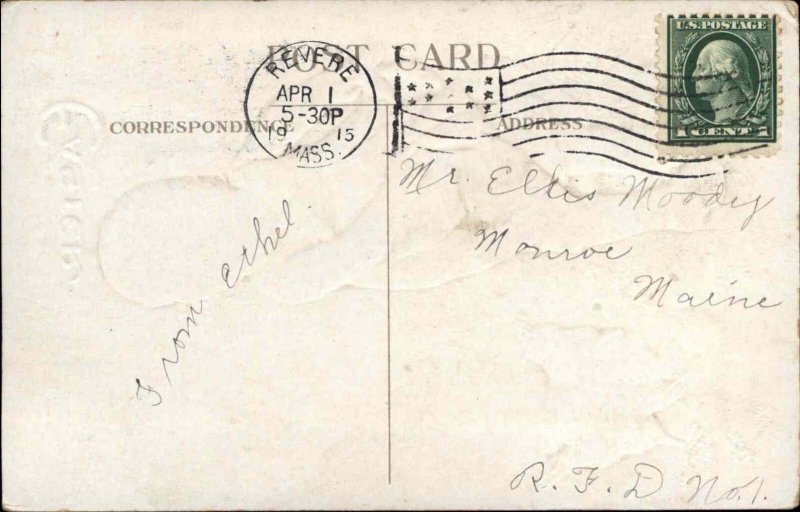 POST CARD
REVERE
APR 1
5-30P
19 15
MASS.
U.S. POSTAGE
1 CENT 1
CORRESPONDENCE
ADDRESS
From Ethel.
Mr. Ellis Moody
Monroe
Maine
R. F. D No. 1.